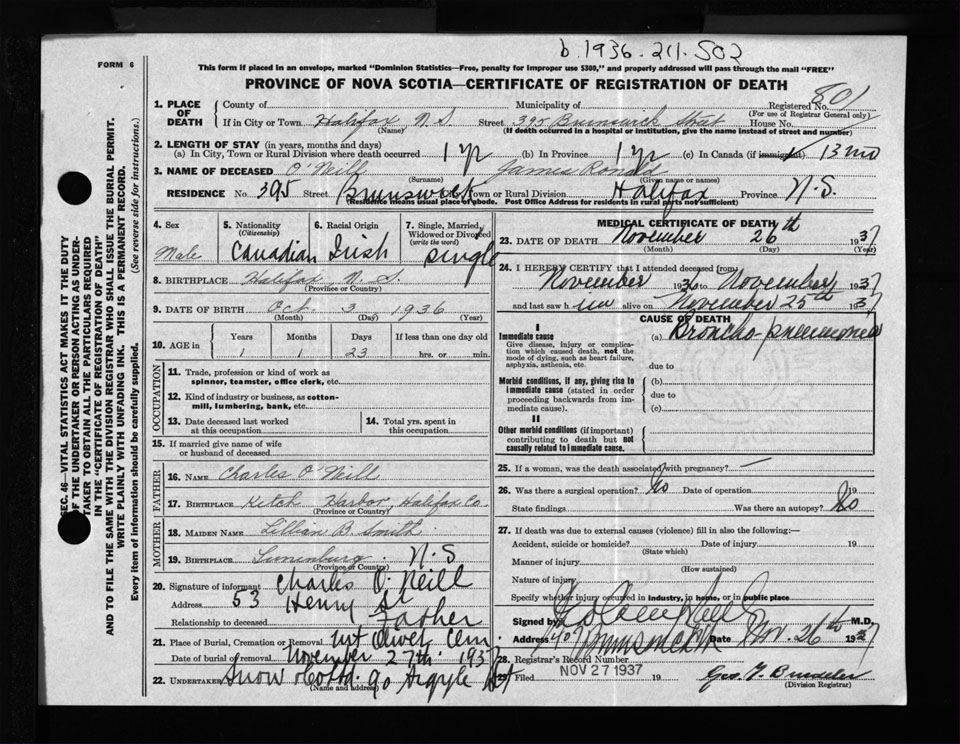 b. 1936. 211. 502
FORM 6
This form if placed in an envelope, marked "Dominion Statistics—Free, penalty for improper use $300," and properly addressed will pass through the mail "FREE"
PROVINCE OF NOVA SCOTIA—CERTIFICATE OF REGISTRATION OF DEATH
1. PLACE OF DEATH
County of Municipality of Registered No. 801
(For use of Registrar General only)
If in City or Town Halifax N. S. Street 395 Brunswick Street House No.
(Name) (If death occurred in a hospital or institution, give the name instead of street and number)
2. LENGTH OF STAY (in years, months and days)
(a) In City, Town or Rural Division where death occurred 1 yr (b) In Province 1 yr (c) In Canada (if immigrant) 13 mo
3. NAME OF DECEASED O'Neill James Ronald
(Surname) (Given name or names)
RESIDENCE No. 395 Street Brunswick City, Town or Rural Division Halifax Province N. S.
(Residence means usual place of abode. Post Office Address for residents in rural parts not sufficient)
4. Sex
Male
5. Nationality
(Citizenship)
Canadian
6. Racial Origin
Irish
7. Single, Married, Widowed or Divorced
(write the word)
single
8. BIRTHPLACE Halifax N. S.
(Province or Country)
9. DATE OF BIRTH Oct. 3 1936
(Month) (Day) (Year)
10. AGE in
Years Months Days If less than one day old
1 1 23 hrs. or min.
OCCUPATION
11. Trade, profession or kind of work as spinner, teamster, office clerk, etc.
12. Kind of industry or business, as cotton-mill, lumbering, bank, etc.
13. Date deceased last worked at this occupation
14. Total yrs. spent in this occupation
15. If married give name of wife or husband of deceased
FATHER
16. NAME Charles O'Neill
17. BIRTHPLACE Ketch Harbor, Halifax Co.
(Province or Country)
MOTHER
18. MAIDEN NAME Lillian B. Smith
19. BIRTHPLACE Lunenburg N. S
(Province or Country)
20. Signature of informant Charles O. Neill
Address 53 Henry St
Relationship to deceased Father
21. Place of Burial, Cremation or Removal Mt Olivet Cem
Date of burial or removal November 27th 1937
22. UNDERTAKER Snow & Co Ltd. 90 Argyle St
(Name and address)
MEDICAL CERTIFICATE OF DEATH
23. DATE OF DEATH November 26th 1937
(Month) (Day) (Year)
24. I HEREBY CERTIFY that I attended deceased from
November 1936 to November 1937
and last saw him alive on November 25th 1937
CAUSE OF DEATH
I
Immediate cause (a) Broncho-pneumonia
Give disease, injury or complication which caused death, not the mode of dying, such as heart failure, asphyxia, asthenia, etc.
due to
Morbid conditions, if any, giving rise to immediate cause (stated in order proceeding backwards from immediate cause).
(b)
due to
(c)
II
Other morbid conditions (if important) contributing to death but not causally related to immediate cause.
25. If a woman, was the death associated with pregnancy? —
26. Was there a surgical operation? No Date of operation 19
State findings Was there an autopsy? No
27. If death was due to external causes (violence) fill in also the following:—
Accident, suicide or homicide? Date of injury 19
(State which)
Manner of injury
(How sustained)
Nature of injury
Specify whether injury occurred in industry, in home, or in public place
Signed by M.D.
Address 407 Brunswick Date Nov. 26th 1937
28. Registrar's Record Number
29. Filed NOV 27 1937 19
(Division Registrar)
SEC. 46—VITAL STATISTICS ACT MAKES IT THE DUTY OF THE UNDERTAKER OR PERSON ACTING AS UNDERTAKER TO OBTAIN ALL THE PARTICULARS REQUIRED IN THE "CERTIFICATE OF REGISTRATION OF DEATH"
AND TO FILE THE SAME WITH THE DIVISION REGISTRAR WHO SHALL ISSUE THE BURIAL PERMIT.
WRITE PLAINLY WITH UNFADING INK. THIS IS A PERMANENT RECORD.
Every item of information should be carefully supplied. (See reverse side for instructions.)